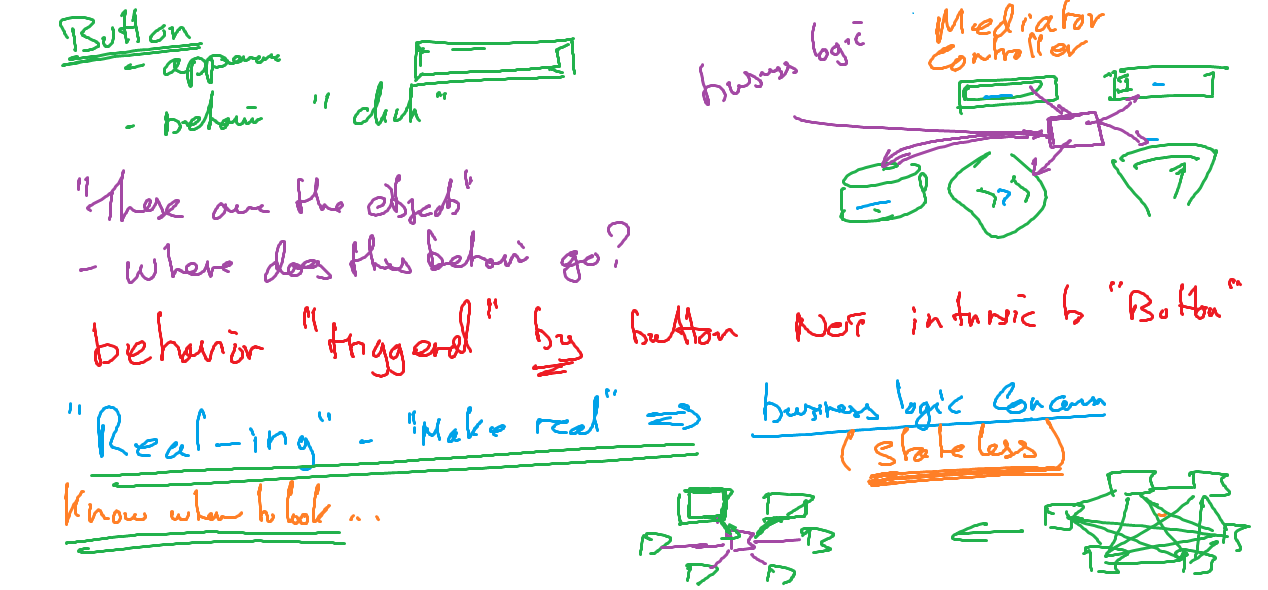 Button
- appearance
- behavior "click"
business logic
Mediator
Controller
"These are the objects"
- where does this behavior go?
behavior "triggered" by button NOT intrinsic to "Button"
"Real-ing" - "Make real" ⇒ business logic concern
(stateless)
Know when to look...